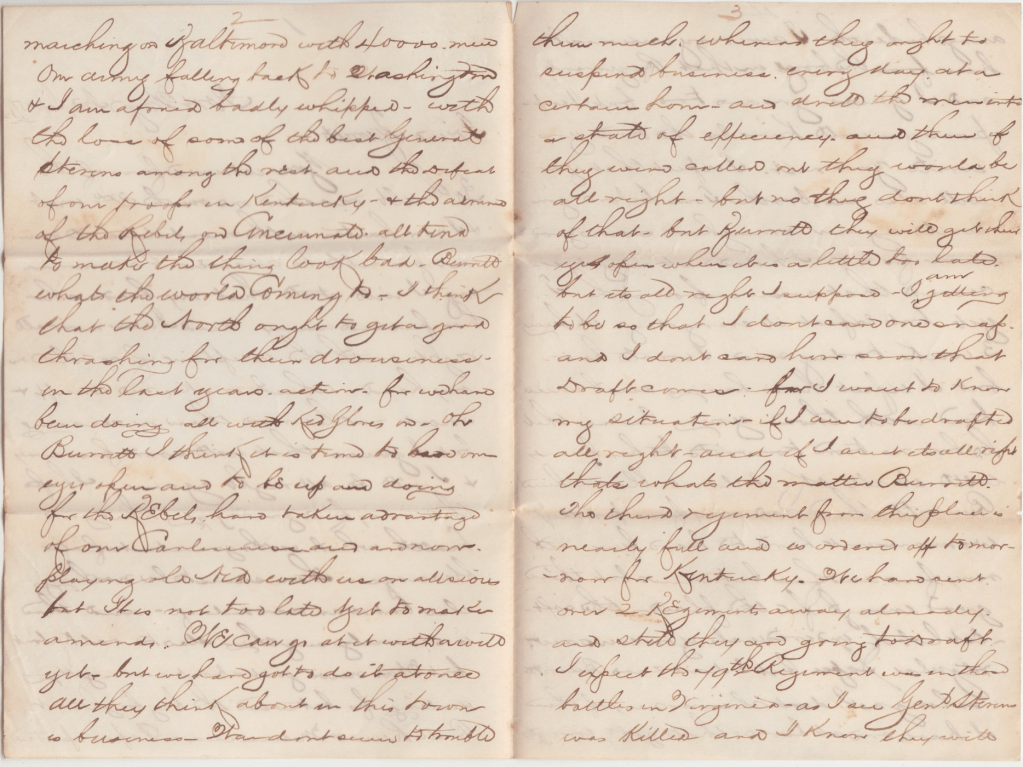 2
marching on Baltimore with 40000. men
Our army falling back to Washington
& I am afraid badly whipped - with
the loss of some of the best Generals
Stevens among the rest. and the Defeat
of our forces in Kentucky - & the advance
of the Rebels on Cincinnati. all tend
to make the thing look bad. Burrett
whats the world Coming to - I think
that the North ought to get a good
thrashing for their drowsiness -
in the last years. action. for we have
been doing all with Kid Gloves on - Oh
Burrett I think it is time to have our
eyes open and to be up and doing
for the REbels have taken advantage
of our Carlessness and are now.
playing old Ned with us on all sides
but It is not too late yet to make
amends. WE can go at it with a will
yet - but we have got to do it at once
All they think about in this town
is business - War dont seem to trouble
3
them much. whereas they ought to
suspend business. every day. at a
certain hour - and drill the men into
a state of efficiency. and then if
they were called out they would be
all right - but no they dont think
of that - but Burrett they will get their
eyes open when it is a little too late.
but its all right I suppose - I am getting
to be so that I dont care one snap.
and I dont care how soon that
Draft comes. for I want to Know
my situation - if I am to be drafted
all right - and if I aint its all right
thats whats the matter Burrett.
The third regiment from this place is
nearly full and is ordered off tomor-
-row for Kentucky. We have sent
over 2 REgiments away already.
and still they are going to Draft
I expect the 79th Regiment was in those
battles in Virginia - as I see Genl. Stevens
was Killed and I Know they will